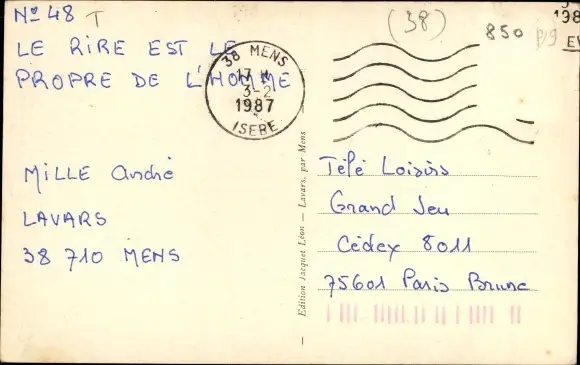 Nº 48 T
LE RIRE EST LE
PROPRE DE L'HOMME
MILLE André
LAVARS
38 710 MENS
38 MENS
17 H
3-2
1987
ISERE
(38)
850
P/9
198
Edition Jacquet Léon — Lavars, par Mens
Télé Loisirs
Grand Jeu
Cédex 8011
75601 Paris Brune